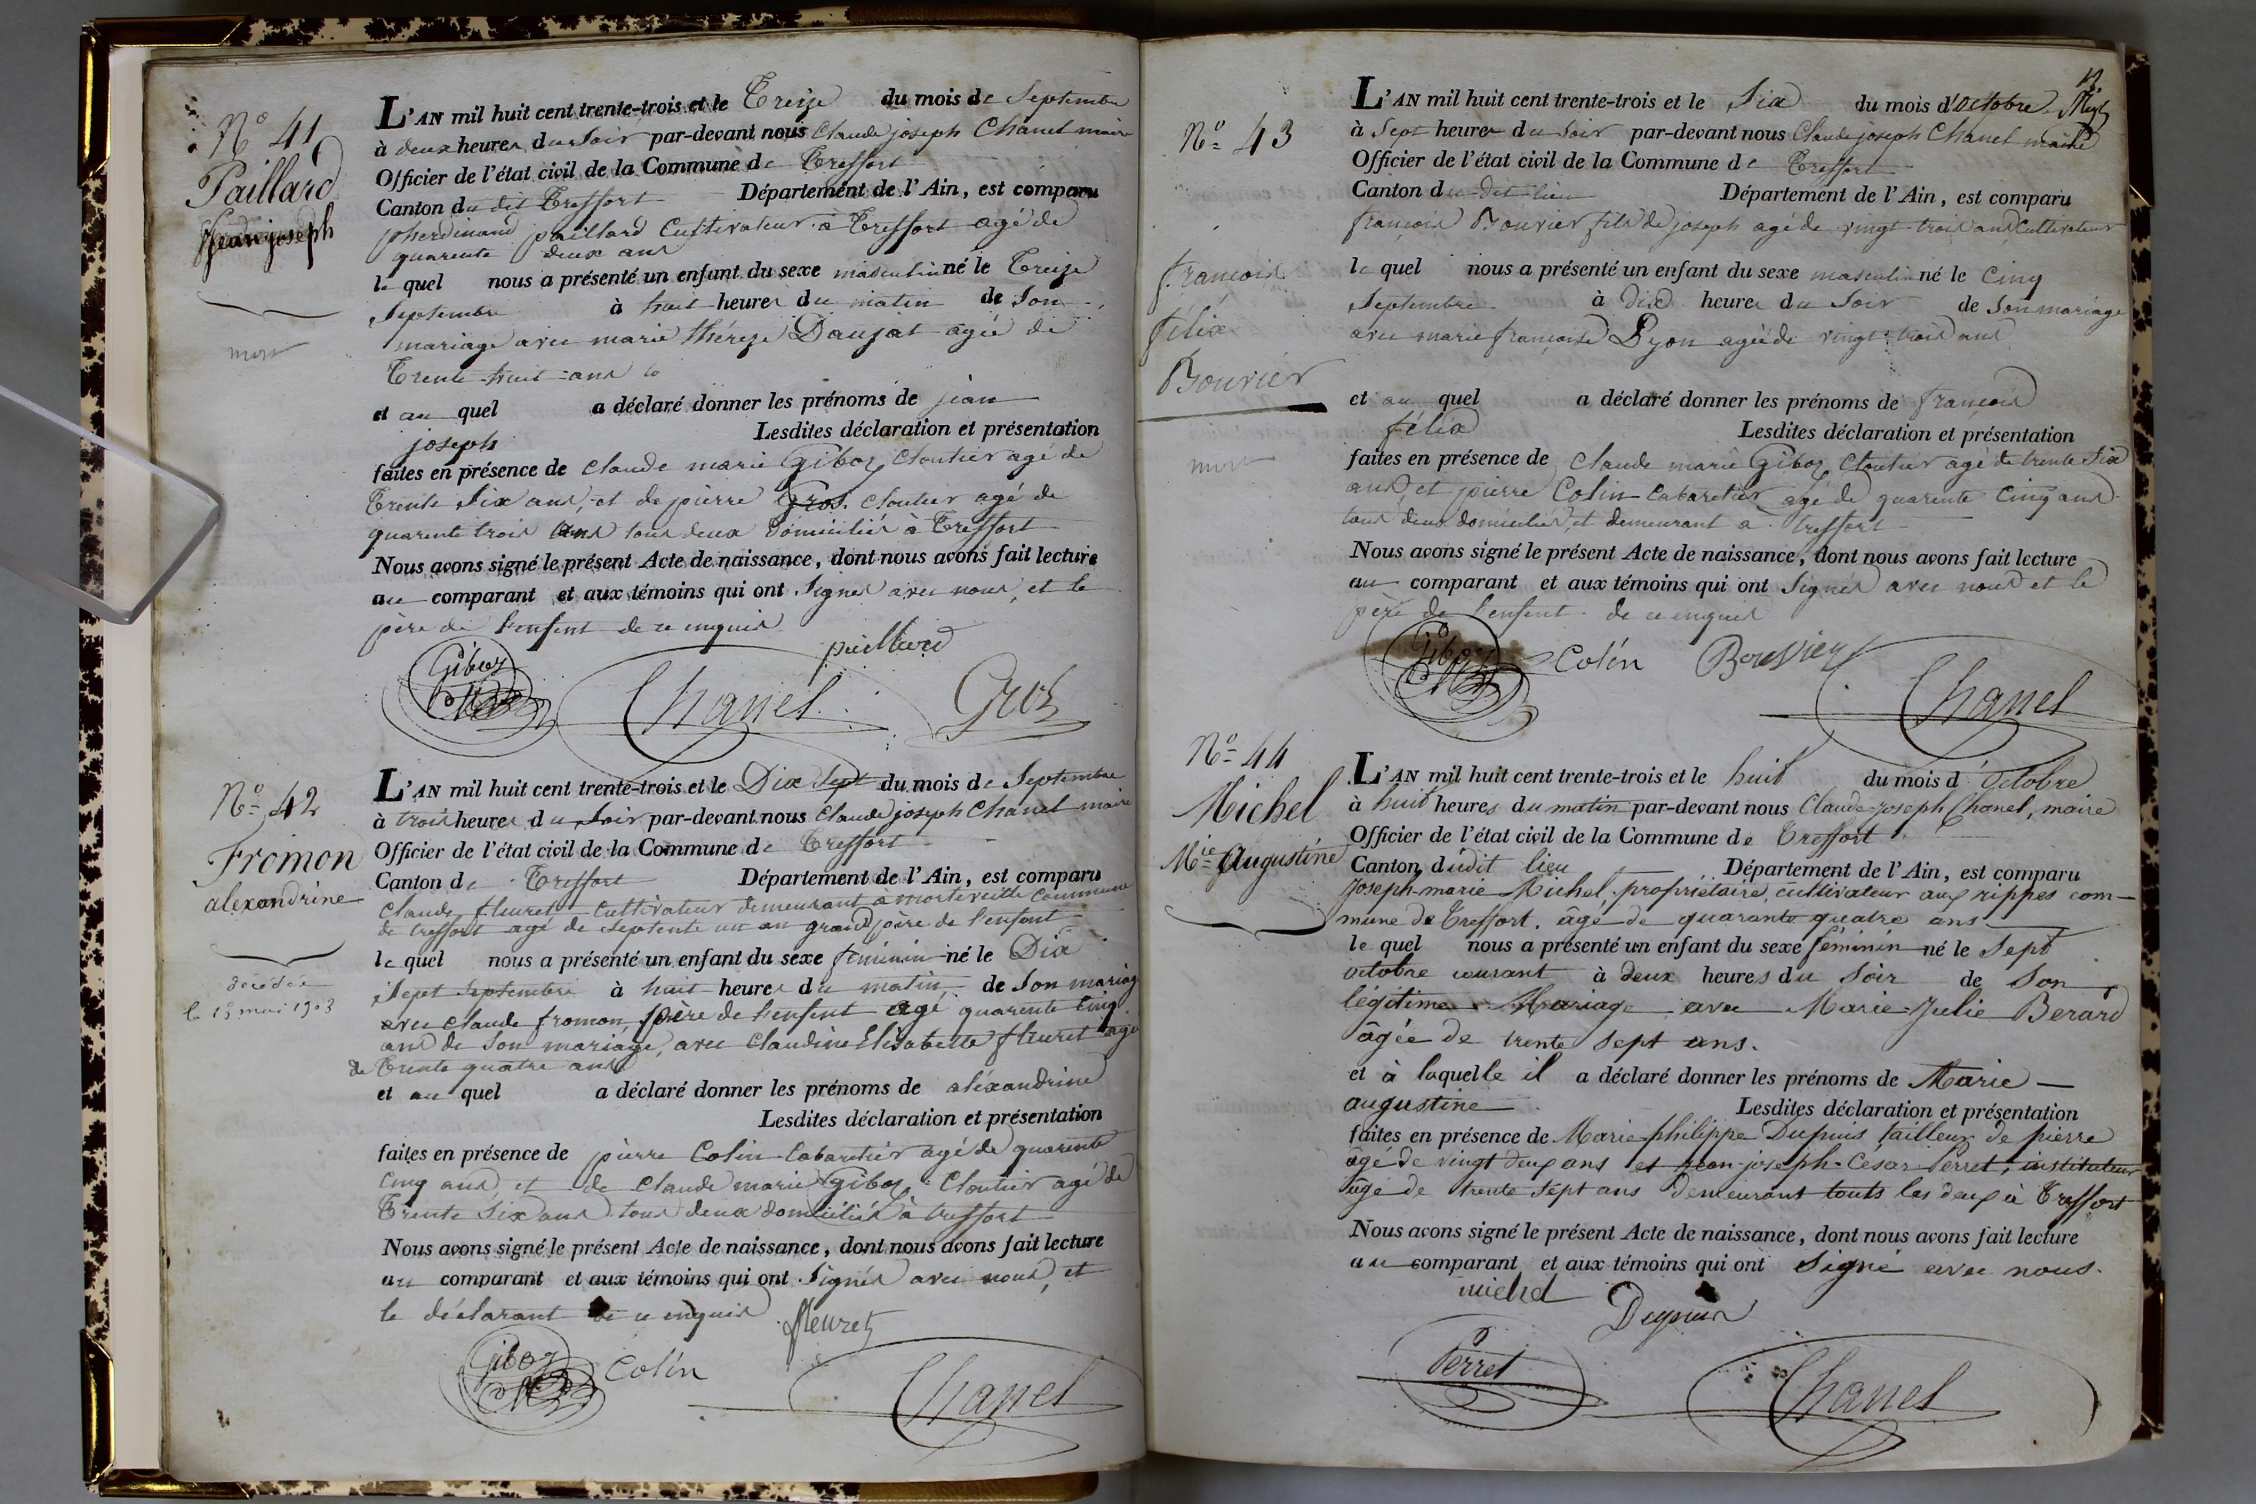 N° 41
Paillard
jean joseph
mort
L'AN mil huit cent trente-trois et le Treize du mois de Septembre
à deux heures du Soir par-devant nous Claude joseph Chanel maire
Officier de l'état civil de la Commune de Treffort
Canton du dit Treffort Département de l'Ain, est comparu
pherdinand paillard Cultivateur à Treffort agé de
quarente deux ans
le quel nous a présenté un enfant du sexe masculin né le Treize
Septembre à huit heures du matin de Son
mariage avec marie thérèze Daujat agée de
Trente huit ans
et au quel a déclaré donner les prénoms de jean
joseph
Lesdites déclaration et présentation
faites en présence de Claude marie Giboz Cloutier agé de
Trente Six ans, et de pierre Gros. Cloutier agé de
quarente trois ans tous deux Domiciliés à Treffort
Nous avons signé le présent Acte de naissance, dont nous avons fait lecture
au comparant et aux témoins qui ont Signés avec nous, et le
père de l'enfent de ce enquis
paillard
Giboz
Chanel
Gros
N° 42
Fromon
alexandrine
décédée
le 15 mai 1903
L'AN mil huit cent trente-trois et le Dix Sept du mois de Septembre
à trois heures du Soir par-devant nous Claude joseph Chanel maire
Officier de l'état civil de la Commune de Treffort
Canton de Treffort Département de l'Ain, est comparu
Claude fleuret Cultivateur demeurant à montevieille Commune
de treffort agé de septente un an grand père de l'enfent
le quel nous a présenté un enfant du sexe féminin né le Dix
Sept Septembre à huit heures du matin de Son mariage
avec claude fromon, père de l'enfent agé quarente cinq
ans de Son mariage, avec Claudine Elisabette fleuret agé
de Trente quatre ans
et au quel a déclaré donner les prénoms de aléxandrine
Lesdites déclaration et présentation
faites en présence de pierre Colin Cabaretier agé de quarente
Cinq ans et de Claude marie Giboz Cloutier agé de
Trente Six ans tous deux domiciliés à treffort
Nous avons signé le présent Acte de naissance, dont nous avons fait lecture
au comparant et aux témoins qui ont Signés avec nous, et
le déclarant de ce enquis
fleuret
Giboz
Colin
Chanel
N° 43
françois
félix
Bouvier
mort
L'AN mil huit cent trente-trois et le Six du mois d'Octobre
à Sept heures du Soir par-devant nous Claude joseph Chanel maire
Officier de l'état civil de la Commune de Treffort
Canton du dit lieu Département de l'Ain, est comparu
françois Bouvier fils de joseph agé de vingt trois ans Cultivateur
le quel nous a présenté un enfant du sexe masculin né le Cinq
Septembre à dix heures du Soir de Son mariage
avec marie françoise Pyon agée de vingt trois ans
et au quel a déclaré donner les prénoms de françois
félix
Lesdites déclaration et présentation
faites en présence de Claude marie Giboz Cloutier agé de trente Six
ans, et pierre Colin Cabaretier agé de quarente Cinq ans
tous deux domiciliés, et demeurant a treffort
Nous avons signé le présent Acte de naissance, dont nous avons fait lecture
au comparant et aux témoins qui ont Signés avec nous et le
père de l'enfent de ce enquis
Giboz
Colin
Bouvier
Chanel
N° 44
Michel
Mie Augustine
L'AN mil huit cent trente-trois et le huit du mois d'Octobre
à huit heures du matin par-devant nous Claude-joseph Chanel, maire
Officier de l'état civil de la Commune de Treffort
Canton dudit lieu Département de l'Ain, est comparu
Joseph-marie Michel, propriétaire, cultivateur aux rippes com-
mune de Treffort, âgé de quarante quatre ans
le quel nous a présenté un enfant du sexe féminin né le Sept
octobre courant à deux heures du Soir de Son
légitime Mariage avec Marie-Julie Berard
âgée de trente sept ans.
et à laquelle il a déclaré donner les prénoms de Marie
augustine
Lesdites déclaration et présentation
faites en présence de Marie-philippe Dupuis tailleur de pierre
âgé de vingt deux ans et jean-joseph-César Perret, instituteur
âgé de trente sept ans Demeurant touts les deux à Treffort
Nous avons signé le présent Acte de naissance, dont nous avons fait lecture
au comparant et aux témoins qui ont signé avec nous.
michel
Dupuis
Perret
Chanel